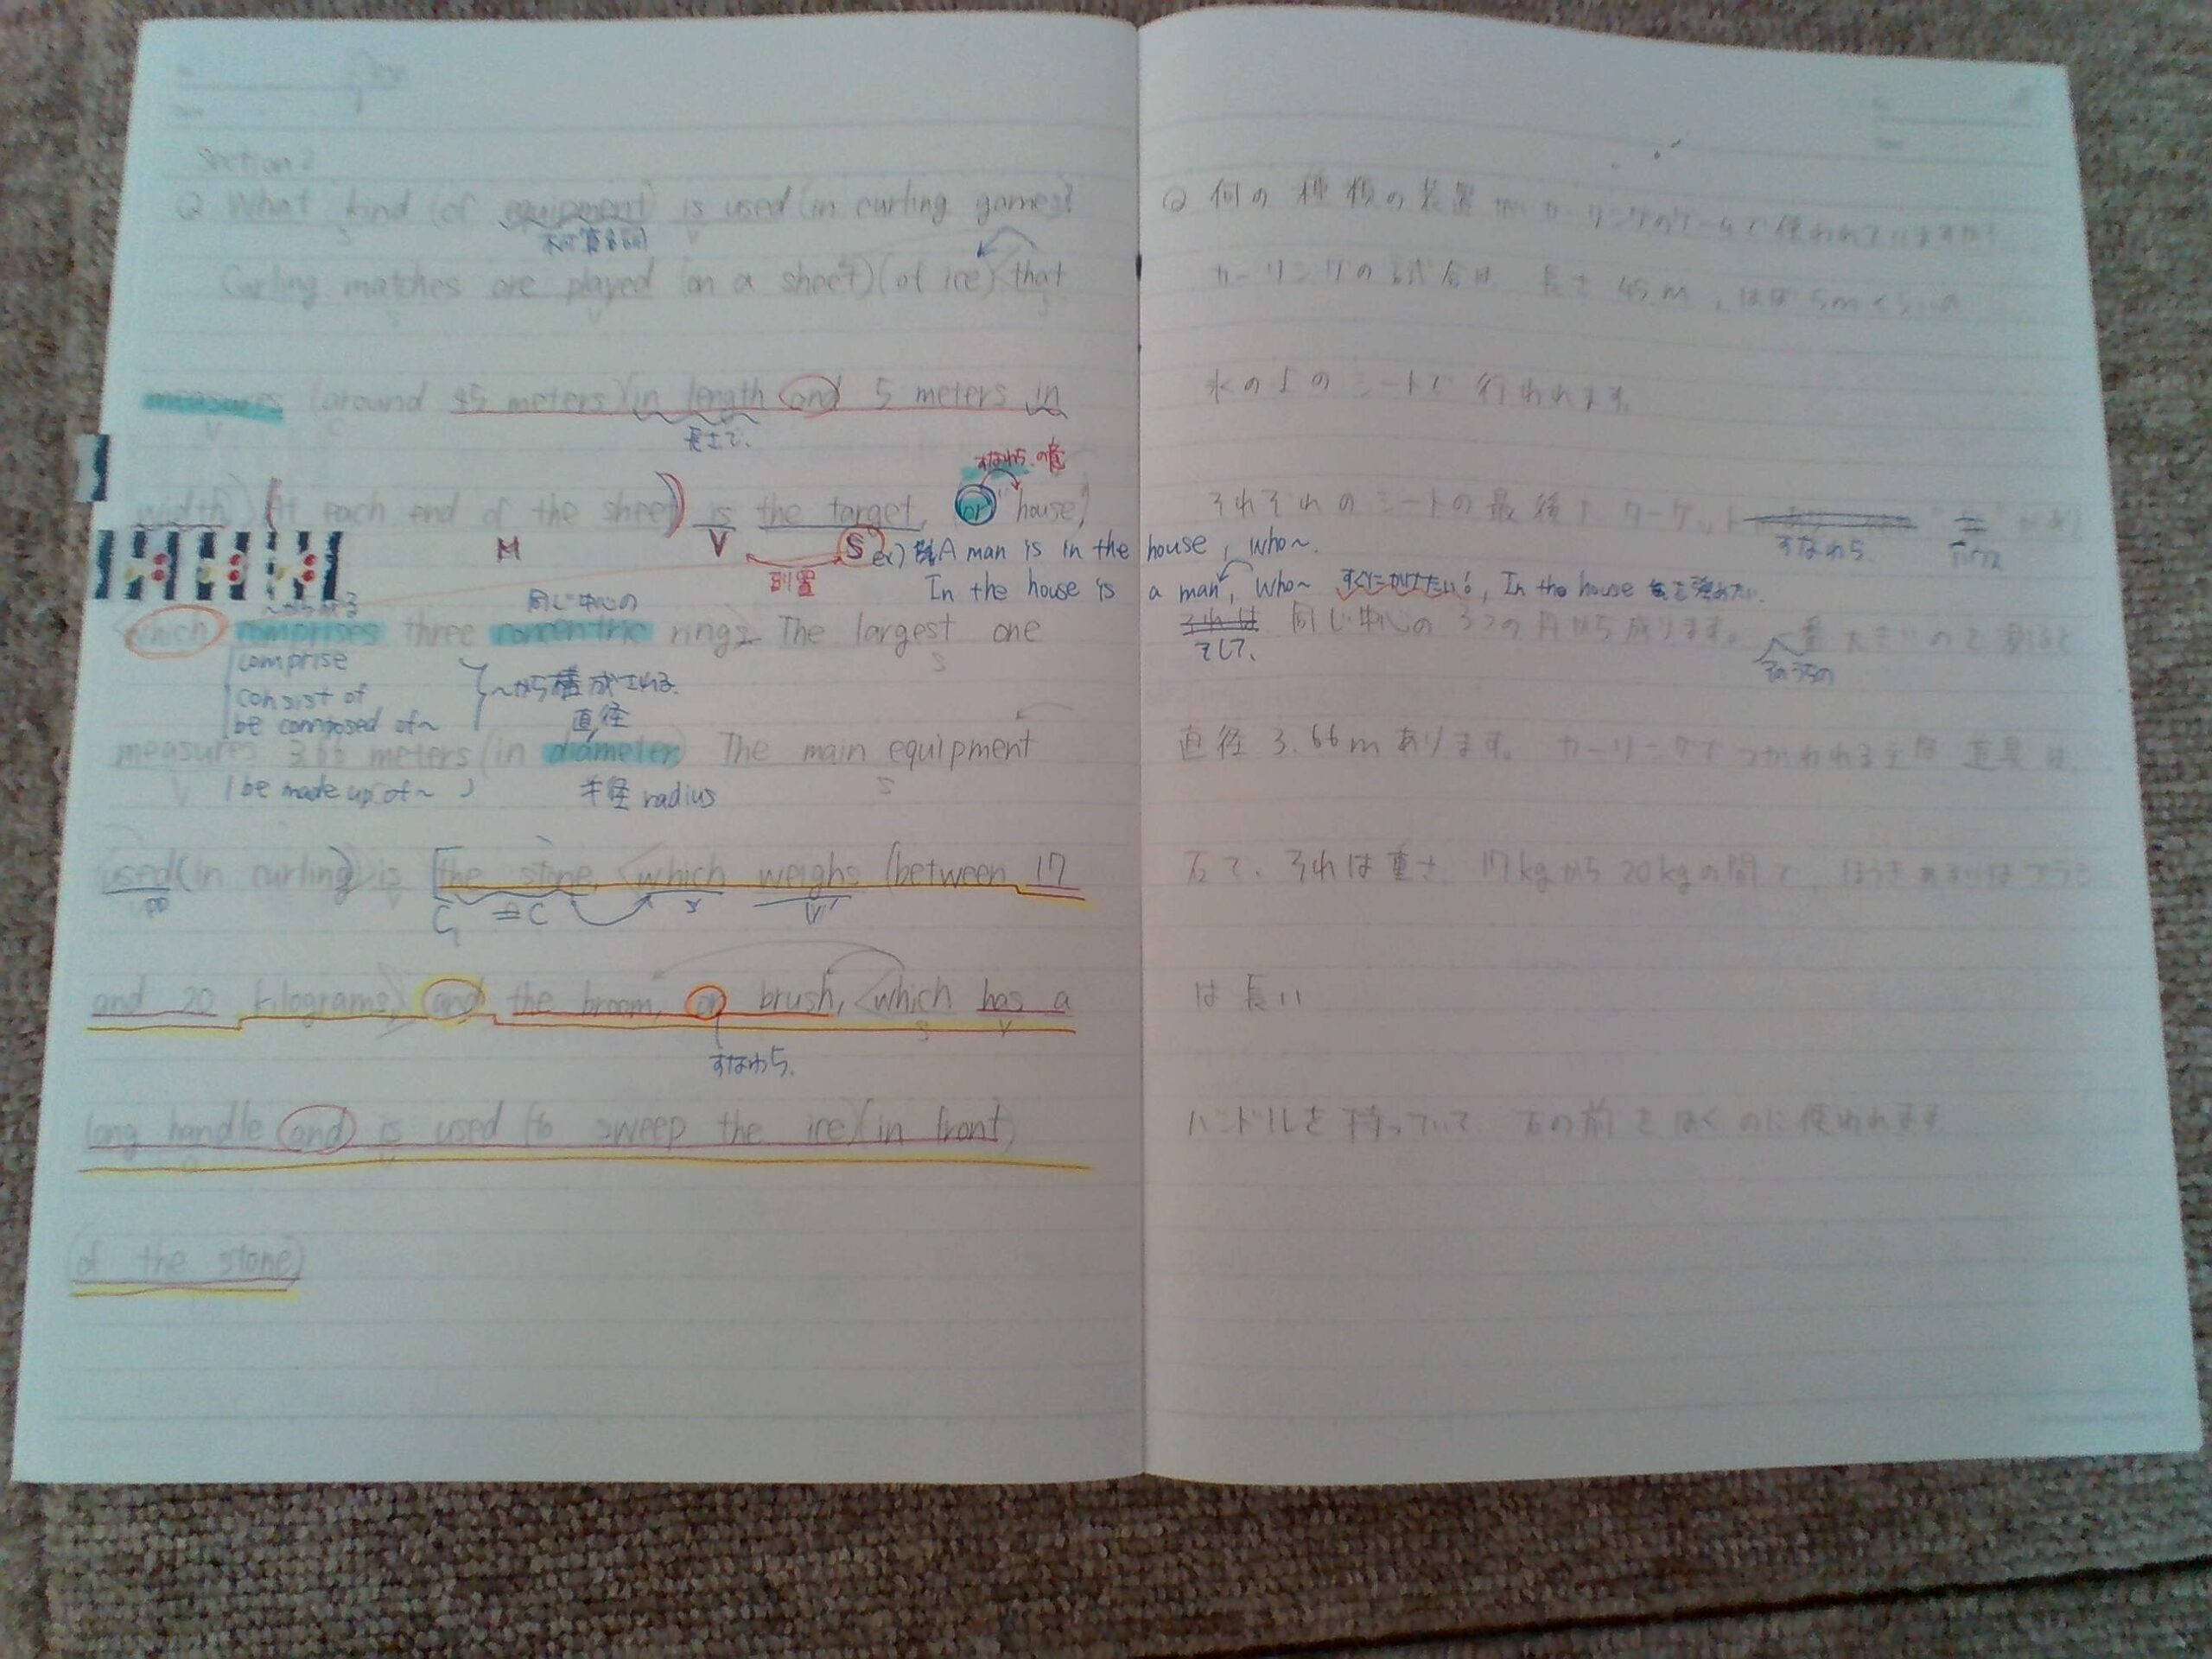 Section 2
Q What kind (of equipment) is used (in curling games?
S V
不可算名詞
Curling matches are played (on a sheet) (of ice) <that
S V S
measures (around 45 meters) (in length and 5 meters in
V C
長さで、
すなわち の意
width) (At each end of the sheet) is the target, (or "house)
M V S
倒置
ex) A man is in the house, who~.
In the house is a man, who~ すぐにかけたい!, In the house を強めたい.
同じ中心の
<which comprises three concentric rings. The largest one
S
comprise
consist of
be composed of~
~から構成される.
直径
measures 3.66 meters (in diameter) The main equipment
V S
be made up of~
半径 radius
used (in curling) is [the stone, <which weighs (between 17
C C S V
and 20 kilograms,> and the broom, or brush, <which has a
S V
すなわち.
long handle and is used (to sweep the ice) (in front)
(of the stone)
Q 何の種類の装置がカーリングのゲームで使われていますか?
カーリングの試合は、長さ45m, ほぼ5mくらいの
氷の上のシートで行われます。
それぞれのシートの最後に ターゲット
すなわち.
それは 同じ中心の3つの円から成ります。 一番大きいので測ると
そして、
そのうちの
直径3.66mあります。 カーリングでつかわれる主な道具は、
石で、それは重さ 17kgから20kgの間で、ほうきあるいはブラシ
は長い
ハンドルを持っていて 石の前をはくのに使われます